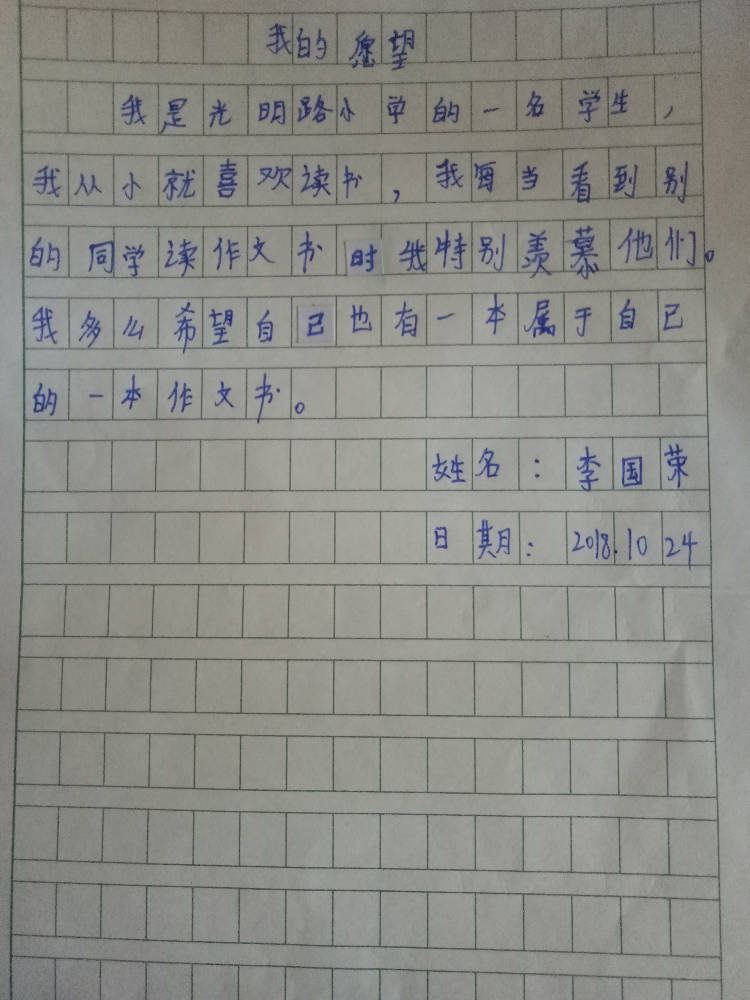 我的愿望
我是光明路小学的一名学生，
我从小就喜欢读书，我每当看到别
的同学读作文书时我特别羡慕他们。
我多么希望自己也有一本属于自己
的一本作文书。
姓名：李国荣
日期：2018.10 24